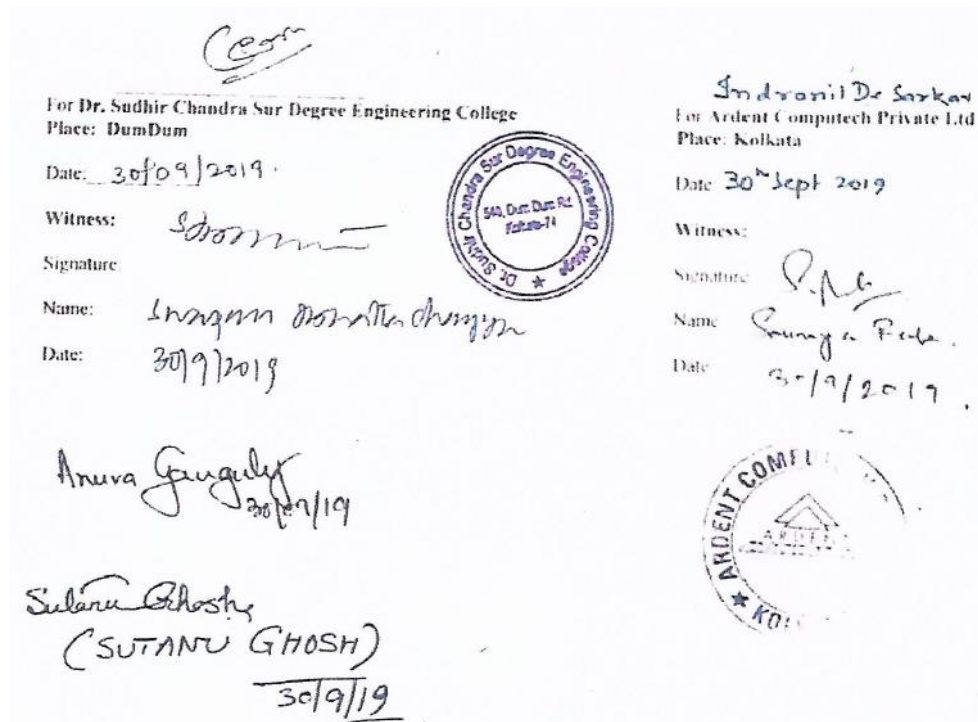 For Dr. Sudhir Chandra Sur Degree Engineering College
Place: DumDum
Date: 30/09/2019.
Witness:
Signature
Name:
Date: 30/9/2019
Dr. Sudhir Chandra Sur Degree Engineering College
540, Dum Dum Rd.
Kolkata-74
Anuva Ganguly
30/09/19
Sutanu Ghosh
(SUTANU GHOSH)
30/9/19
Indranil De Sarkar
For Ardent Computech Private Ltd
Place: Kolkata
Date 30th Sept 2019
Witness:
Signature
Name
Date 30/9/2019.
ARDENT
ARDENT